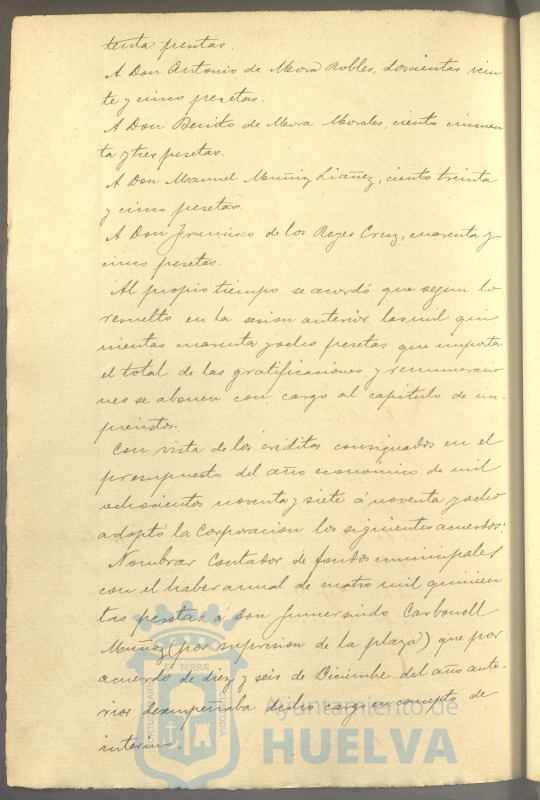 tenta pesetas.
A Don Antonio de Mora Robles, doscientas vein
te y cinco pesetas.
A Don Benito de Mora Morales, ciento cincuen
ta y tres pesetas.
A Don Manuel Muñiz Liañez, ciento treinta
y cinco pesetas.
A Don Francisco de los Reyes Cruz, cuarenta y
cinco pesetas.
Al propio tiempo se acordó que segun lo
resuelto en la sesion anterior las mil qui
nientas cuarenta y ocho pesetas que importa
el total de las gratificaciones y remuneracio
nes se abonen con cargo al capitulo de im-
previstos.
Con vista de los créditos consignados en el
presupuesto del año económico de mil
ochocientos noventa y siete á noventa y ocho
adoptó la Corporacion los siguientes acuerdos:
Nombrar Contador de fondos municipales
con el haber anual de cuatro mil quinien
tas pesetas á Don Gumersindo Carbonell
Muñoz (por supresion de la plaza) que por
acuerdo de diez y seis de Diciembre del año ante-
rior desempeñaba dicho cargo en concepto de
interino.
Ayuntamiento de
HUELVA